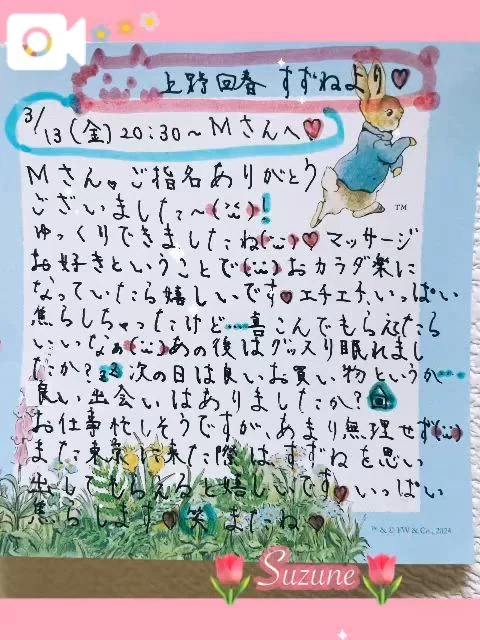 上野回春 すずねより♥
3/13(金)20:30〜Mさんへ♥
Mさん♥ご指名ありがとう
ございました〜(¨̮)!
ゆっくりできましたね(¨̮)♥マッサージ
お好きということで(¨̮)おカラダ楽に
なっていたら嬉しいです♥エチエチ、いっぱい
焦らしちゃったけど…喜こんでもらえたら
いいなぁ(¨̮)あの後はグッスリ眠れまし
たか?zz次の日は良いお買い物というか…
良い出会いはありましたか?
お仕事忙しそうですが、あまり無理せず(¨̮)
また東京に来た際は、すずねを思い
出してもらえると嬉しいです♥いっぱい
焦らします♥笑 またね♥
TM
™ & © FW & Co., 2024
Suzune